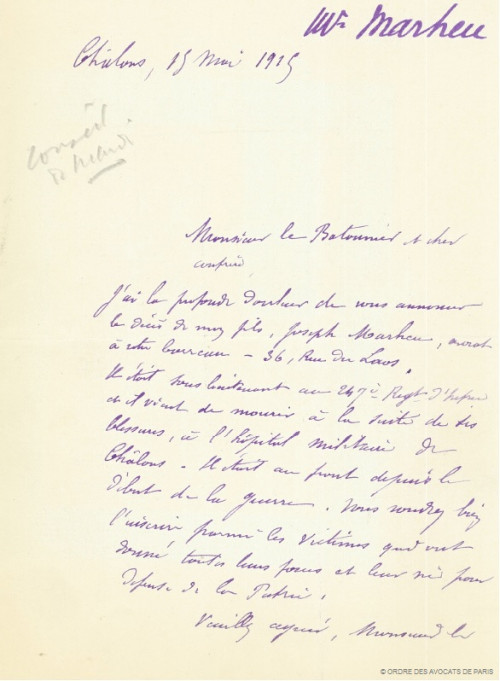 Mr Marheu
Châlons, 15 Mai 1915
Conseil
Monsieur le Batonnier et cher
confrère,
J'ai la profonde douleur de vous annoncer
le décès de mon fils, Joseph Marheu, avocat
à votre barreau - 36, Rue du Laos.
Il était sous lieutenant au 247e Regt d'Infrie
et il vient de mourir à la suite de ses
blessures, à l'hôpital militaire de
Châlons. Il était au front depuis le
début de la guerre. Vous voudrez bien
l'inscrire parmi les victimes qui ont
donné toutes leurs forces et leur vie pour
défense de la Patrie.
Veuillez agréer, Monsieur le
© ORDRE DES AVOCATS DE PARIS